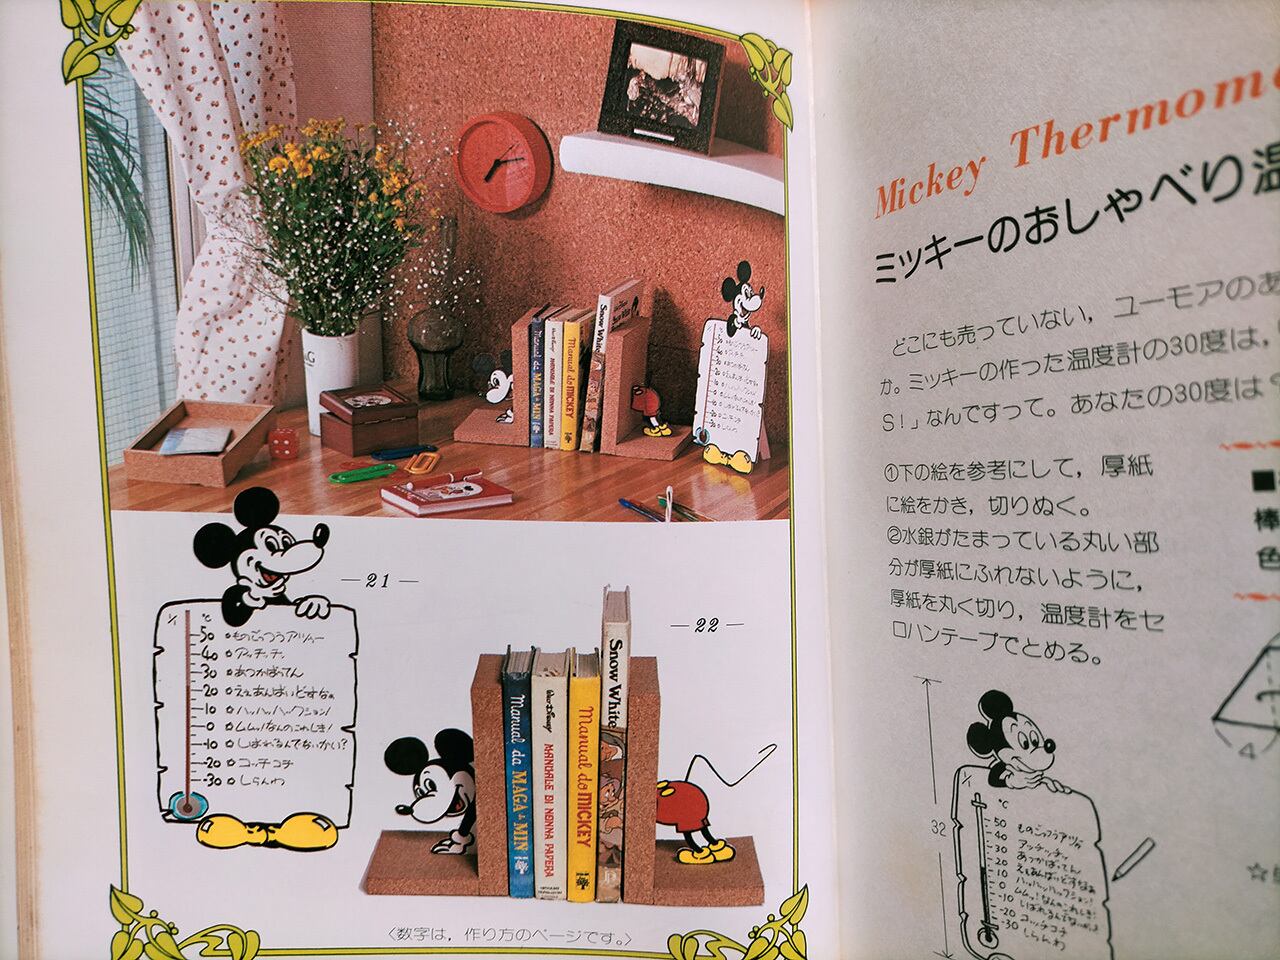 Snow White
Manual da MAGA & MIN
MANUALE DI NONNA PAPERA
Manual do MICKEY
—21—
℃
50 ものごっつうアツゥー
40 アッチッチッ
30 あつかばってん
20 ええあんばいどすなぁ
10 ハッハッハックション!
0 ムムッ!なんのこれしき!
-10 しばれるんでないかい?
-20 コッチコチ
-30 しらんわ
—22—
Manual da MAGA & MIN
WALT DISNEY MANUALE DI NONNA PAPERA
Manual do MICKEY
Snow White
〈数字は，作り方のページです。〉
Mickey Thermom
ミッキーのおしゃべり温
どこにも売っていない，ユーモアのあ
か。ミッキーの作った温度計の30度は，
S!」なんですって。あなたの30度は
①下の絵を参考にして，厚紙
に絵をかき，切りぬく。
②水銀がたまっている丸い部
分が厚紙にふれないように，
厚紙を丸く切り，温度計をセ
ロハンテープでとめる。
棒
色
32
℃
50 ものごっつうアツゥ
40 アッチッチッ
30 あつかばってん
20 ええあんばいどすなぁ
10 ハッハッハックション!
0 ムムッ!なんのこれしき!
-10 しばれるんでないかい
-20 コッチコチ
-30 しらんわ
4